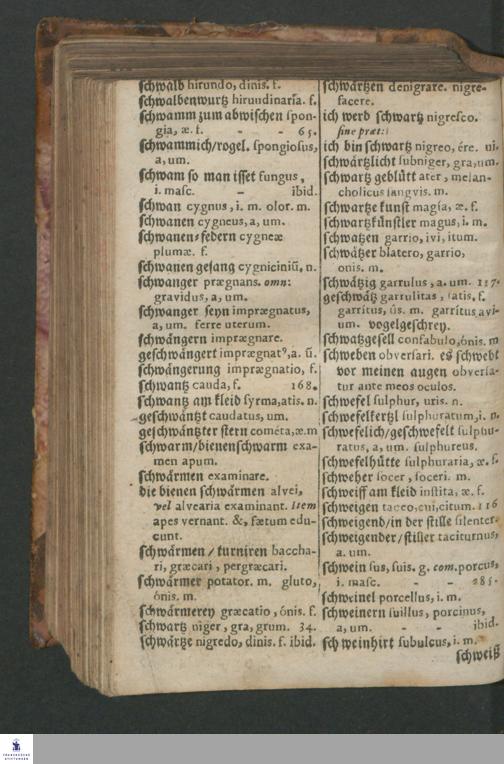 schwalb hirundo, dinis. f.
schwalbenwurtz hirundinaria. f.
schwamm zum abwischen spon-
gia, æ. f. - - 65.
schwammich/rogel. spongiosus,
a, um.
schwam so man isset fungus,
i. masc. - - ibid.
schwan cygnus, i. m. olor. m.
schwanen cygneus, a, um.
schwanen-federn cygneæ
plumæ. f.
schwanen gesang cygniciniū, n.
schwanger prægnans. omn:
gravidus, a, um.
schwanger seyn imprægnatus,
a, um. ferre uterum.
schwängern imprægnare.
geschwängert imprægnat⁹, a. ū.
schwängerung imprægnatio, f.
schwantz cauda, f. 168.
schwantz am kleid syrma, atis. n.
geschwäntzt caudatus, um.
geschwäntzter stern cometa, æ. m
schwarm/bienenschwarm exa-
men apum.
schwärmen examinare.
die bienen schwärmen alvei,
vel alvearia examinant. Item
apes vernant. &, fætum edu-
cunt.
schwärmen/ turniren baccha-
ri, græcari, pergræcari.
schwärmer potator. m. gluto,
ónis. m.
schwärmerey græcatio, ónis. f.
schwartz niger, gra, grum. 34.
schwärtze nigredo, dinis. f. ibid.
schwärtzen denigrare. nigre-
facere.
ich werd schwartz nigresco.
sine præt:
ich bin schwartz nigreo, ére. ui.
schwärtzlicht subniger, gra, um.
schwartz geblütt ater, melan-
cholicus sanguis. m.
schwartze kunst magia, æ. f.
schwartzkünstler magus, i. m.
schwatzen garrio, ivi, itum.
schwätzer blatero, garrio,
onis. m.
schwätzig garrulus, a. um. 137.
geschwätz garrulitas, tatis. f.
garritus, ûs. m. garritus avi-
um. vogelgeschrey.
schwatzgesell confabulo, ónis. m
schweben obversari. es schwebt
vor meinen augen obversa-
tur ante meos oculos.
schwefel sulphur, uris. n.
schwefelkertzl sulphuratum, i. n.
schwefelich/geschwefelt sulphu-
ratus, a, um. sulphureus.
schwefelhütte sulphuraria, æ. f.
schweher socer, soceri. m.
schweiff am kleid instita, æ. f.
schweigen taceo, cui, citum. 116
schweigend/in der stille silenter.
schweigender/stiller taciturnus,
a. um.
schwein sus, suis. g. com. porcus,
i. masc. - - 285.
schweinel porcellus, i. m.
schweinern suillus, porcinus,
a, um. - - ibid.
schweinhirt subulcus, i. m.
schweiß